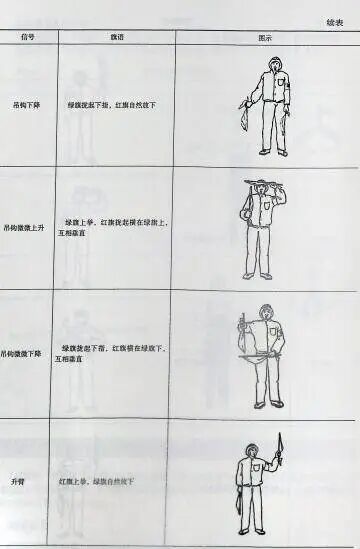 续表
信号 旗语 图示
吊钩下降 绿旗拢起下指，红旗自然放下
吊钩微微上升 绿旗上举，红旗拢起横在绿旗上，
互相垂直
吊钩微微下降 绿旗拢起下指，红旗横在绿旗下，
互相垂直
升臂 红旗上举，绿旗自然放下